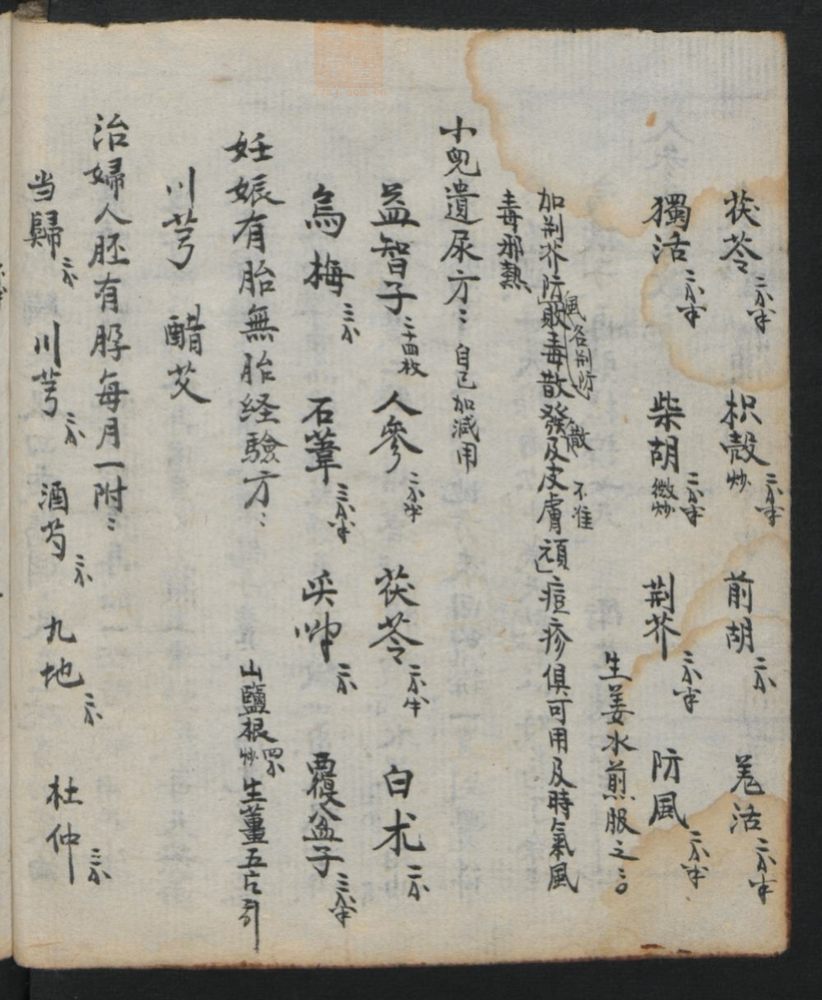 茯苓 二分半 枳殼炒 二分半 前胡 二分 羌活 二分半
獨活 二分半 柴胡微炒 二分半 荆芥 二分半 防風 二分半
生姜水煎服之
加荆芥防風名荆防敗毒散 散發及皮膚不准頑痘疹俱可用及時氣風
毒邪熱
小兒遺尿方 自己加減用
益智子 二十四枚 人參 二分半 茯苓 二分半 白朮 二分
烏梅 三分 石葦 三分半 二分 覆盆子 三分半
妊娠有胎無胎経驗方 山鹽根炒 四分 生薑五片引
川芎 醋艾
治婦人胚有脬每月一附
当歸 三分 川芎 二分 酒芍 三分 九地 二分 杜仲 三分